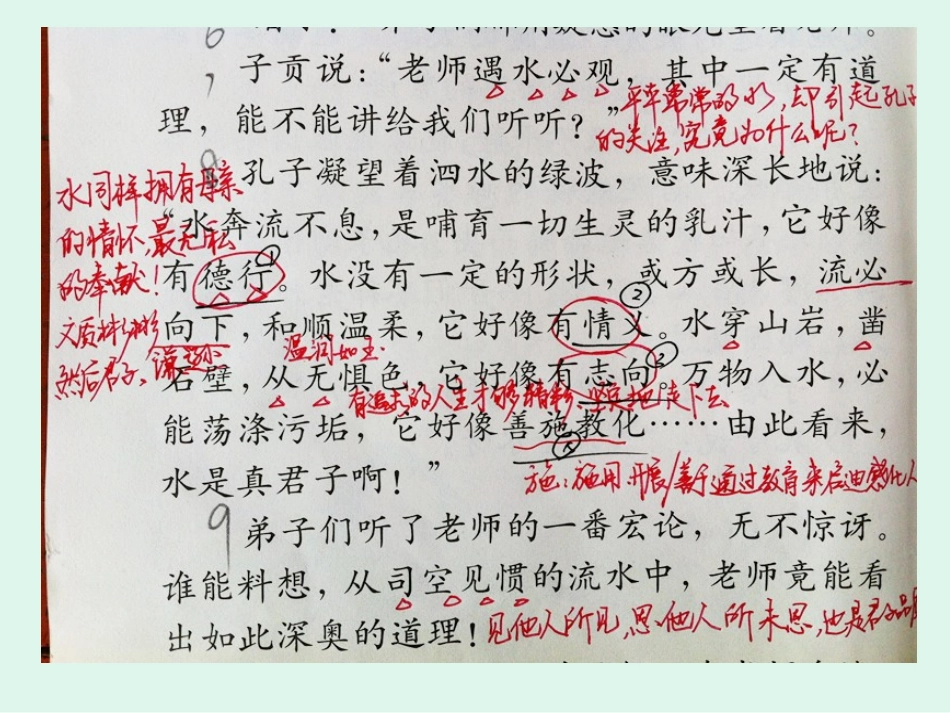 6
7
子贡说：“老师遇水必观，其中一定有道
理，能不能讲给我们听听？”
平平常常的水，却引起孔子
的关注，究竟为什么呢？
8
孔子凝望着泗水的绿波，意味深长地说：
水同样拥有母亲
的情怀，最无私
的奉献！
“水奔流不息，是哺育一切生灵的乳汁，它好像
有德行。水没有一定的形状，或方或长，流必
①
②
文质彬彬
然后君子、谦逊
向下，和顺温柔，它好像有情义。水穿山岩，凿
温润如玉
③
石壁，从无惧色，它好像有志向。万物入水，必
有追求的人生才够精彩 坚定地走下去
能荡涤污垢，它好像善施教化……由此看来，
④
水是真君子啊！”
施：施用 开展/善于通过教育来启迪感化人
9
弟子们听了老师的一番宏论，无不惊讶。
谁能料想，从司空见惯的流水中，老师竟能看
出如此深奥的道理！
见他人所见，思他人所未思，也是君子品